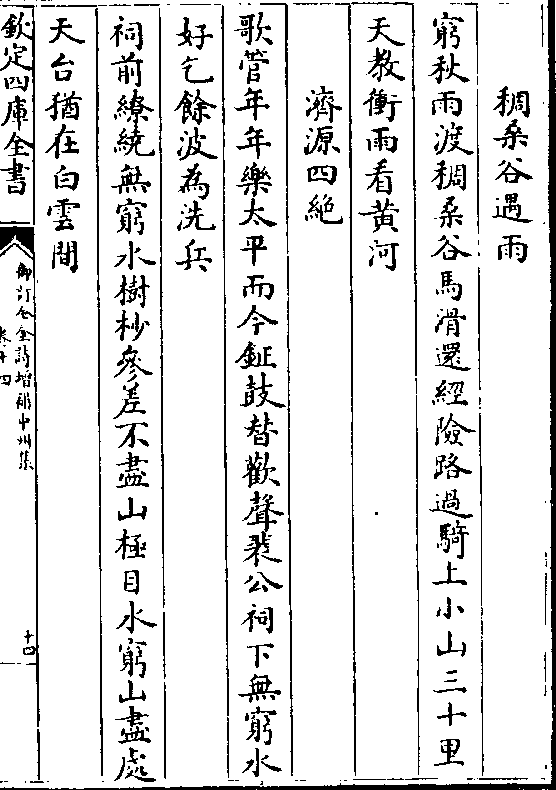 稠桑谷遇雨
窮秋雨渡稠桑谷馬滑還經險路過騎上小山三十里
天教衝雨看黃河
濟源四絶
歌管年年樂太平而今鉦鼓替歡聲裴公祠下無窮水
好乞餘波為洗兵
祠前繚繞無窮水樹杪參差不盡山極目水窮山盡處
天台猶在白雲間
欽定四庫全書
御訂全金詩增補中州集
卷十四
十四